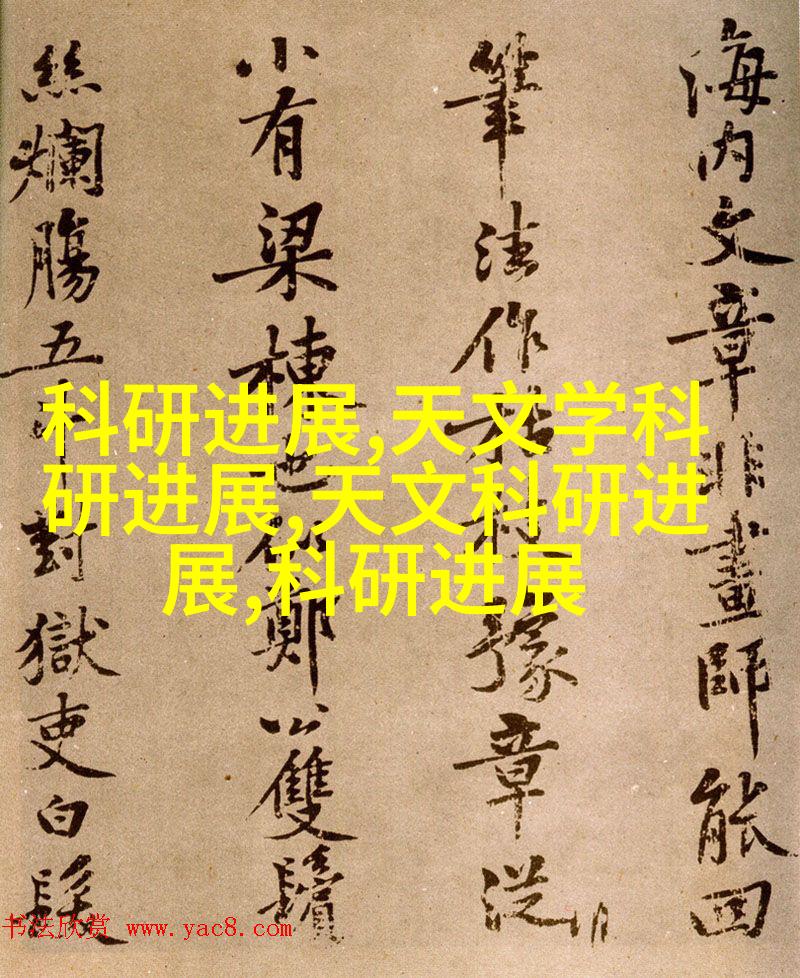 海内文章非畫師能回
筆法作枯枝豫章從
小有梁棟也似鄭公雙鬢
絲爛腸五斗對獄吏白髮
科研进展,天文学科
研进展,天文科研进
展,科研进展
书法欣赏 www.yac8.com